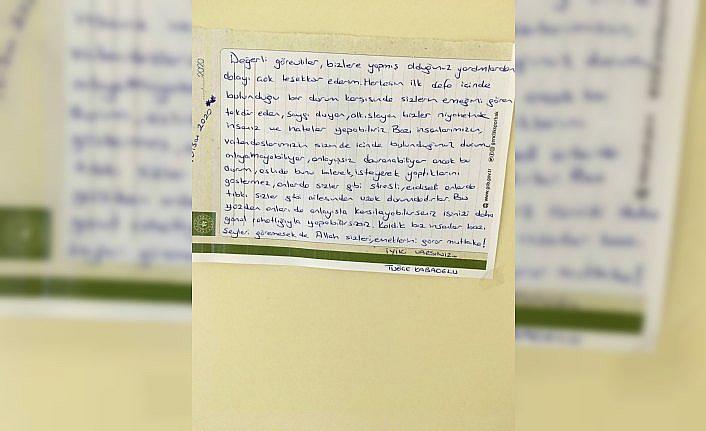 Değerli görevliler, bizlere yapmış olduğunuz yardımlardan
dolayı çok teşekkür ederim. Herkesin ilk defa içinde
bulunduğu bir durum karşısında sizlerin emeğini gören
takdir eden, saygı duyan, alkışlayan bizler nihayetinde
insanız ve hatalar yapabiliriz. Bazı insanlarımızın,
vatandaşlarımızın sizin de içinde bulunduğunuz durumu
anlayamayabiliyor, anlayışsız davranabiliyor ancak bu
durum, aslında bunu bilerek, isteyerek yaptıklarını
göstermez, onlarda sizler gibi stresli, endişeli onlarda
tıpkı sizler gibi ailesinden uzak durumdadırlar. Bu
yüzden onları da anlayışla karşılayabilirseniz işinizi daha
gönül rahatlığıyla yapabilirsiniz. Kaldı ki biz insanlar bazı
şeyleri göremesek de Allah sizleri, emeklerini görür mutlaka!
İYİKİ VARSINIZ...
TUĞÇE KABAOĞLU
2020
2020
www.gsb.gov.tr
gencliksporbak